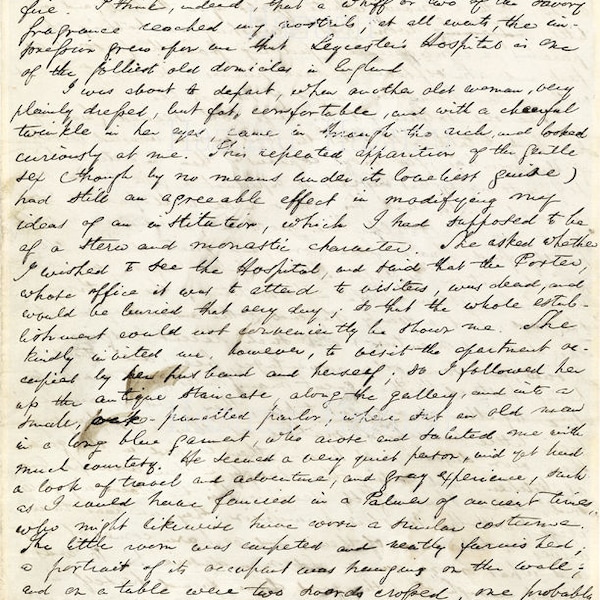 fire. I think, indeed, that a whiff or two of the savory
fragrance reached my nostrils; at all events, the im-
pression grew upon me that Leycester's Hospital is one
of the jolliest old domiciles in England
I was about to depart, when another old woman, very
plainly dressed, but fat, comfortable, and with a cheerful
twinkle in her eyes, came in through the arch, and looked
curiously at me. This repeated apparition of the gentle
sex (though by no means under its loveliest guise)
had still an agreeable effect in modifying my
ideas of an institution, which I had supposed to be
of a stern and monastic character. She asked whether
I wished to see the Hospital, and said that the Porter,
whose office it was to attend to visitors, was dead, and
would be buried that very day; so that the whole estab-
lishment could not conveniently be shown me. She
kindly invited me, however, to visit the apartment oc-
cupied by her husband and herself; so I followed her
up the antique staircase, along the gallery, and into a
small, oak-panelled parlor, where sat an old man
in a long blue garment, who arose and saluted me with
much courtesy. He seemed a very quiet person, and yet had
a look of travel and adventure, and gray experience, such
as I could have fancied in a Palmer of ancient times,
who might likewise have worn a similar costume.
The little room was carpeted and neatly furnished;
a portrait of its occupant was hanging on the wall;
and on a table were two swords crossed, one probably